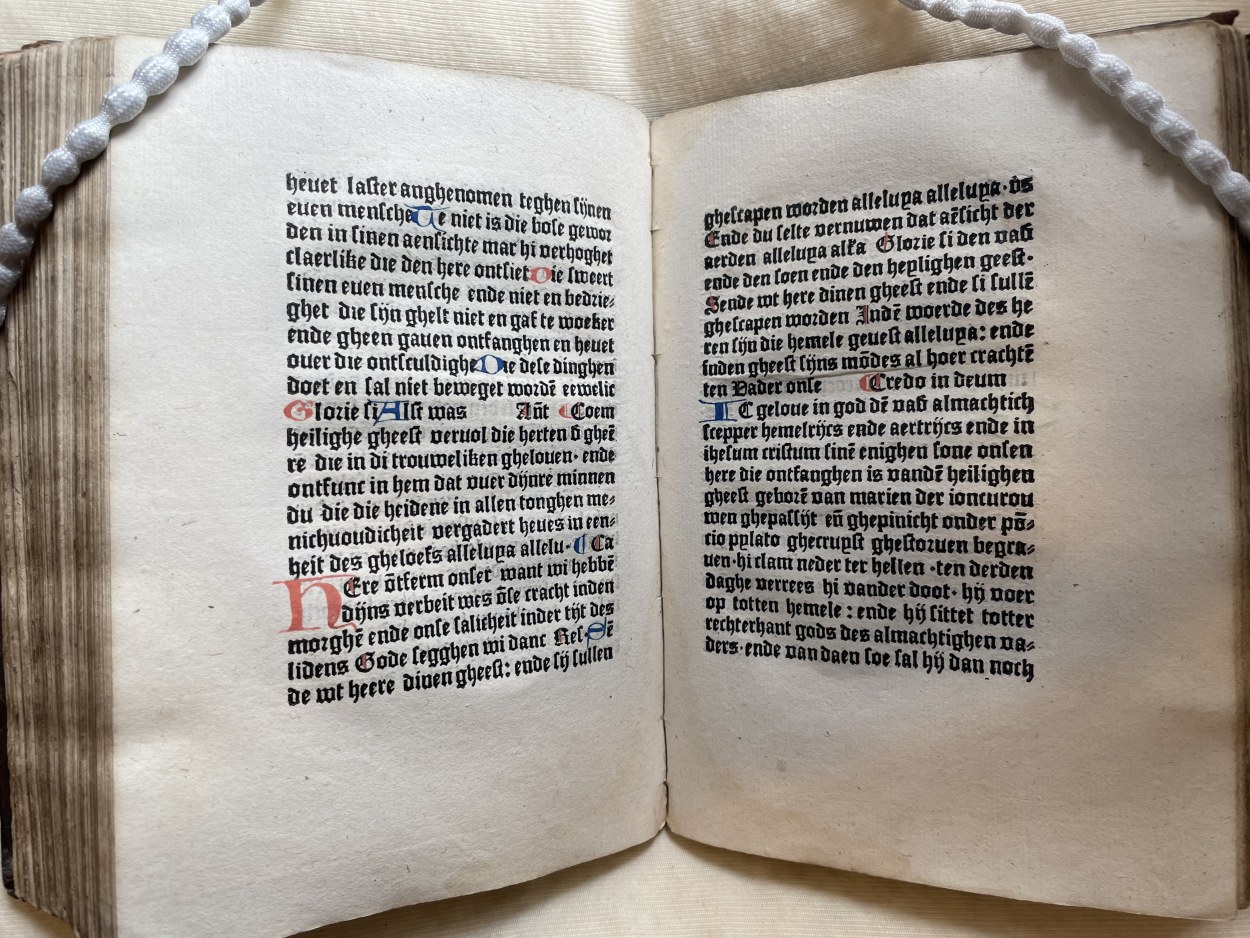 heuet laster anghenomen teghen sijnen
euen mensche Te niet is die bose gewor
den in sinen aensichte mar hi verhoghet
claerlike die den here ontsiet Die sweert
sinen euen mensche ende niet en bedrie⸗
ghet die sijn ghelt niet en gaf te woeker
ende gheen gauen ontfanghen en heuet
ouer die ontsculdighe Die dese dinghen
doet en sal niet beweget wordē eewelic
Glorie si Alst was Āut Coem
heilighe gheest veruol die herten d̕ gheē
re die in di trouweliken ghelouen· ende
ontfunc in hem dat vuer dijnre minnen
du die die heidene in allen tonghen me⸗
nichuoudicheit vergadert heues in een⸗
heit des gheloefs alleluya allelu· Ca
HEre ōtferm onser want wi hebbē
dijns verbeit wes ōse cracht inden
morghē ende onse salicheit inder tijt des
lidens Gode segghen wi danc Res· Sē
de wt heere diuen gheest: ende sij sullen
ghescapen worden alleluya alleluya· v̕s
Ende du selte vernuwen dat aēsicht der
aerden alleluya alľa Glorie si den vad̕
ende den soen ende den heylighen geest·
Sende wt here dinen gheest ende si sullē
ghescapen worden Indē woerde des he
ren sijn die hemele geuest alleluya: ende
inden gheest sijns mōdes al hoer crachtē
ten Vader onse Credo in deum
IC geloue in god dē vad̕ almachtich
scepper hemelrijcs ende aertrijcs ende in
ihesum cristum sinē enighen sone onsen
here die ontfanghen is vandē heilighen
gheest geborē van marien der ioncurou
wen ghepassijt eñ ghepinicht onder pō⸗
cio pylato ghecruyst ghestoruen begra⸗
uen· hi clam neder ter hellen ·ten derden
daghe verrees hi vander doot· hij voer
op totten hemele : ende hij sittet totter
rechterhant gods des almachtighen va⸗
ders· ende van daen soe sal hij dan noch